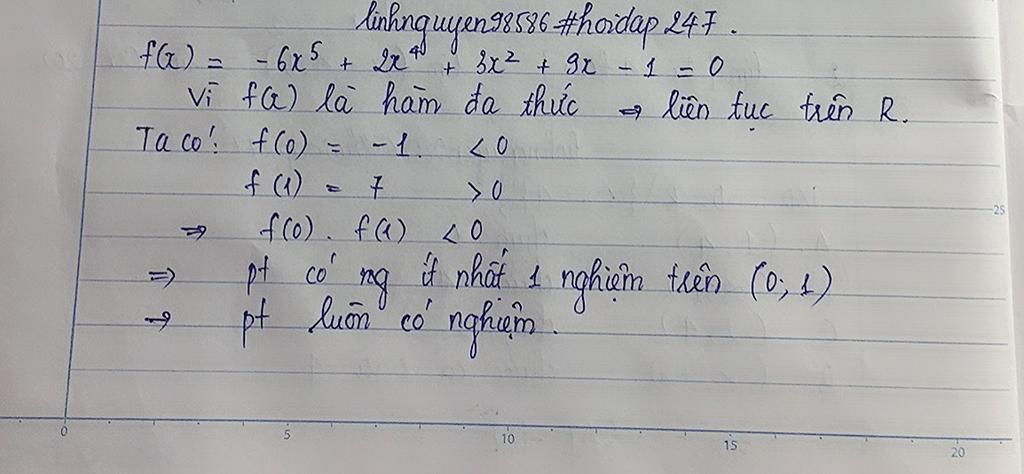 linhnguyen98586 #hoidap247.
f(x) = -6x⁵ + 2x⁴ + 3x² + 9x - 1 = 0
Vì f(x) là hàm đa thức ⇒ liên tục trên R.
Ta có: f(0) = -1. < 0
f(1) = 7 > 0
⇒ f(0). f(1) < 0
⇒ pt có ng ít nhất 1 nghiệm trên (0; 1)
⇒ pt luôn có nghiệm.
25
0 5 10 15 20